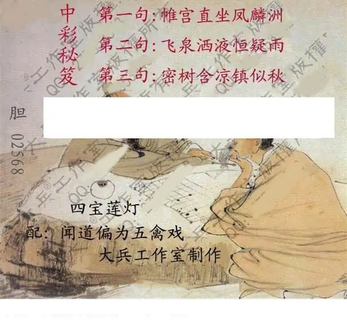 中彩秘笈
第一句:帷宫直坐凤麟洲
第二句:飞泉洒液恒疑雨
第三句:密树含凉镇似秋
胆 02568
四宝莲灯
配:闻道偏为五禽戏
大兵工作室制作